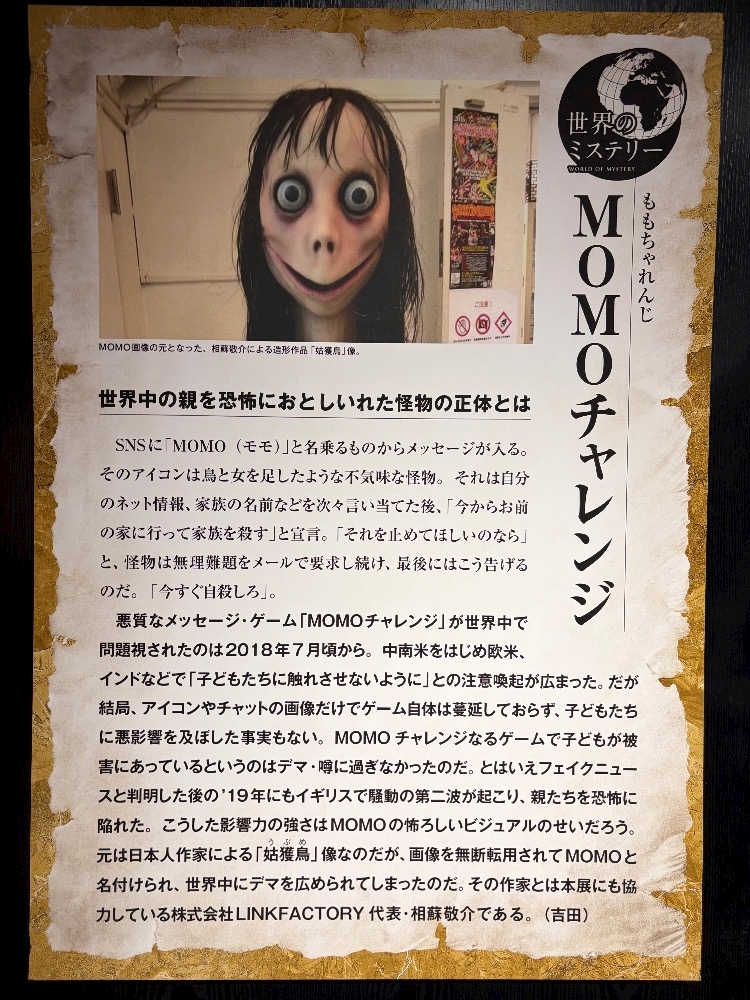 世界の
ミステリー
WORLD OF MYSTERY
ももちゃれんじ
MOMOチャレンジ
ご注意!
MOMO画像の元となった、相蘇敬介による造形作品「姑獲鳥」像。
世界中の親を恐怖におとしいれた怪物の正体とは
SNSに「MOMO(モモ)」と名乗るものからメッセージが入る。
そのアイコンは鳥と女を足したような不気味な怪物。それは自分
のネット情報、家族の名前などを次々言い当てた後、「今からお前
の家に行って家族を殺す」と宣言。「それを止めてほしいのなら」
と、怪物は無理難題をメールで要求し続け、最後にはこう告げる
のだ。「今すぐ自殺しろ」。
悪質なメッセージ・ゲーム「MOMOチャレンジ」が世界中で
問題視されたのは2018年7月頃から。中南米をはじめ欧米、
インドなどで「子どもたちに触れさせないように」との注意喚起が広まった。だが
結局、アイコンやチャットの画像だけでゲーム自体は蔓延しておらず、子どもたち
に悪影響を及ぼした事実もない。MOMOチャレンジなるゲームで子どもが被
害にあっているというのはデマ・噂に過ぎなかったのだ。とはいえフェイクニュー
スと判明した後の'19年にもイギリスで騒動の第二波が起こり、親たちを恐怖に
陥れた。こうした影響力の強さはMOMOの怖ろしいビジュアルのせいだろう。
うぶめ
元は日本人作家による「姑獲鳥」像なのだが、画像を無断転用されてMOMOと
名付けられ、世界中にデマを広められてしまったのだ。その作家とは本展にも協
力している株式会社LINKFACTORY代表・相蘇敬介である。(吉田)